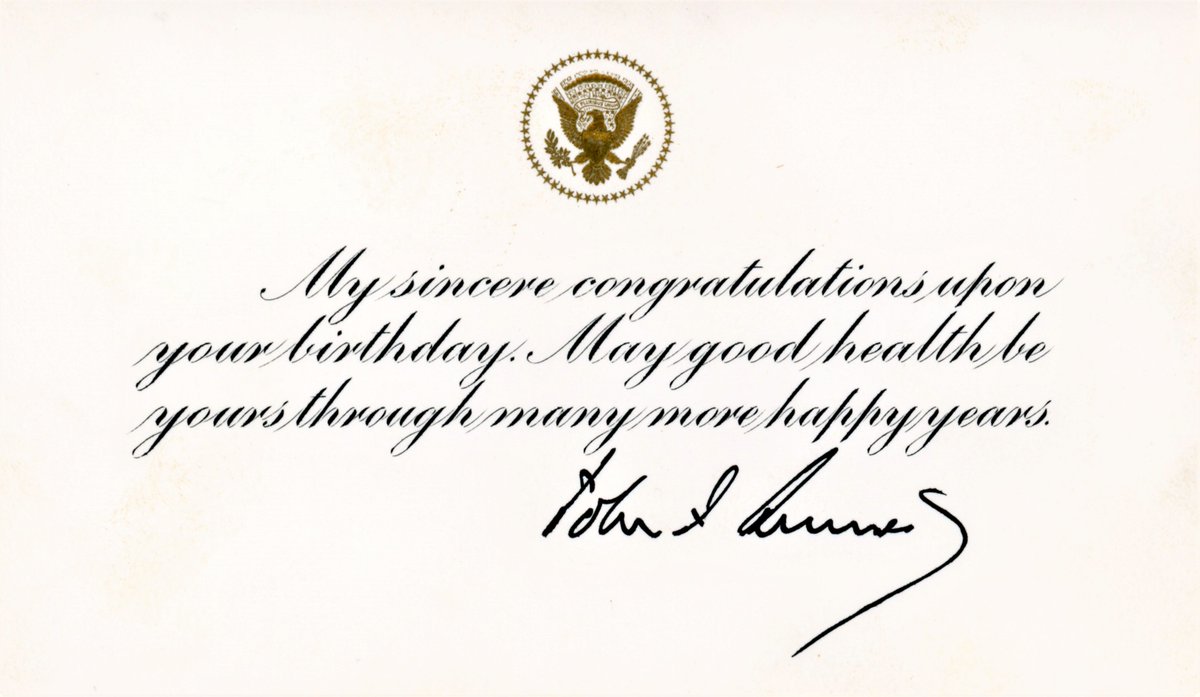 My sincere congratulations upon
your birthday. May good health be
yours through many more happy years.